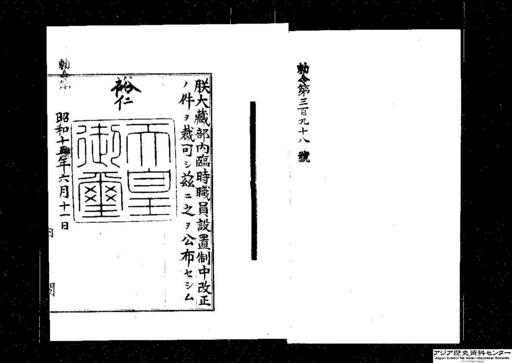 勅令第三百九十八號
朕大藏部内臨時職員設置制中改正
ノ件ヲ裁可シ茲ニ之ヲ公布セシム
裕仁
天皇
御璽
昭和十年六月十一日
勅令第
内閣
アジア歴史資料センター
Japan Center for Asian Historical Records